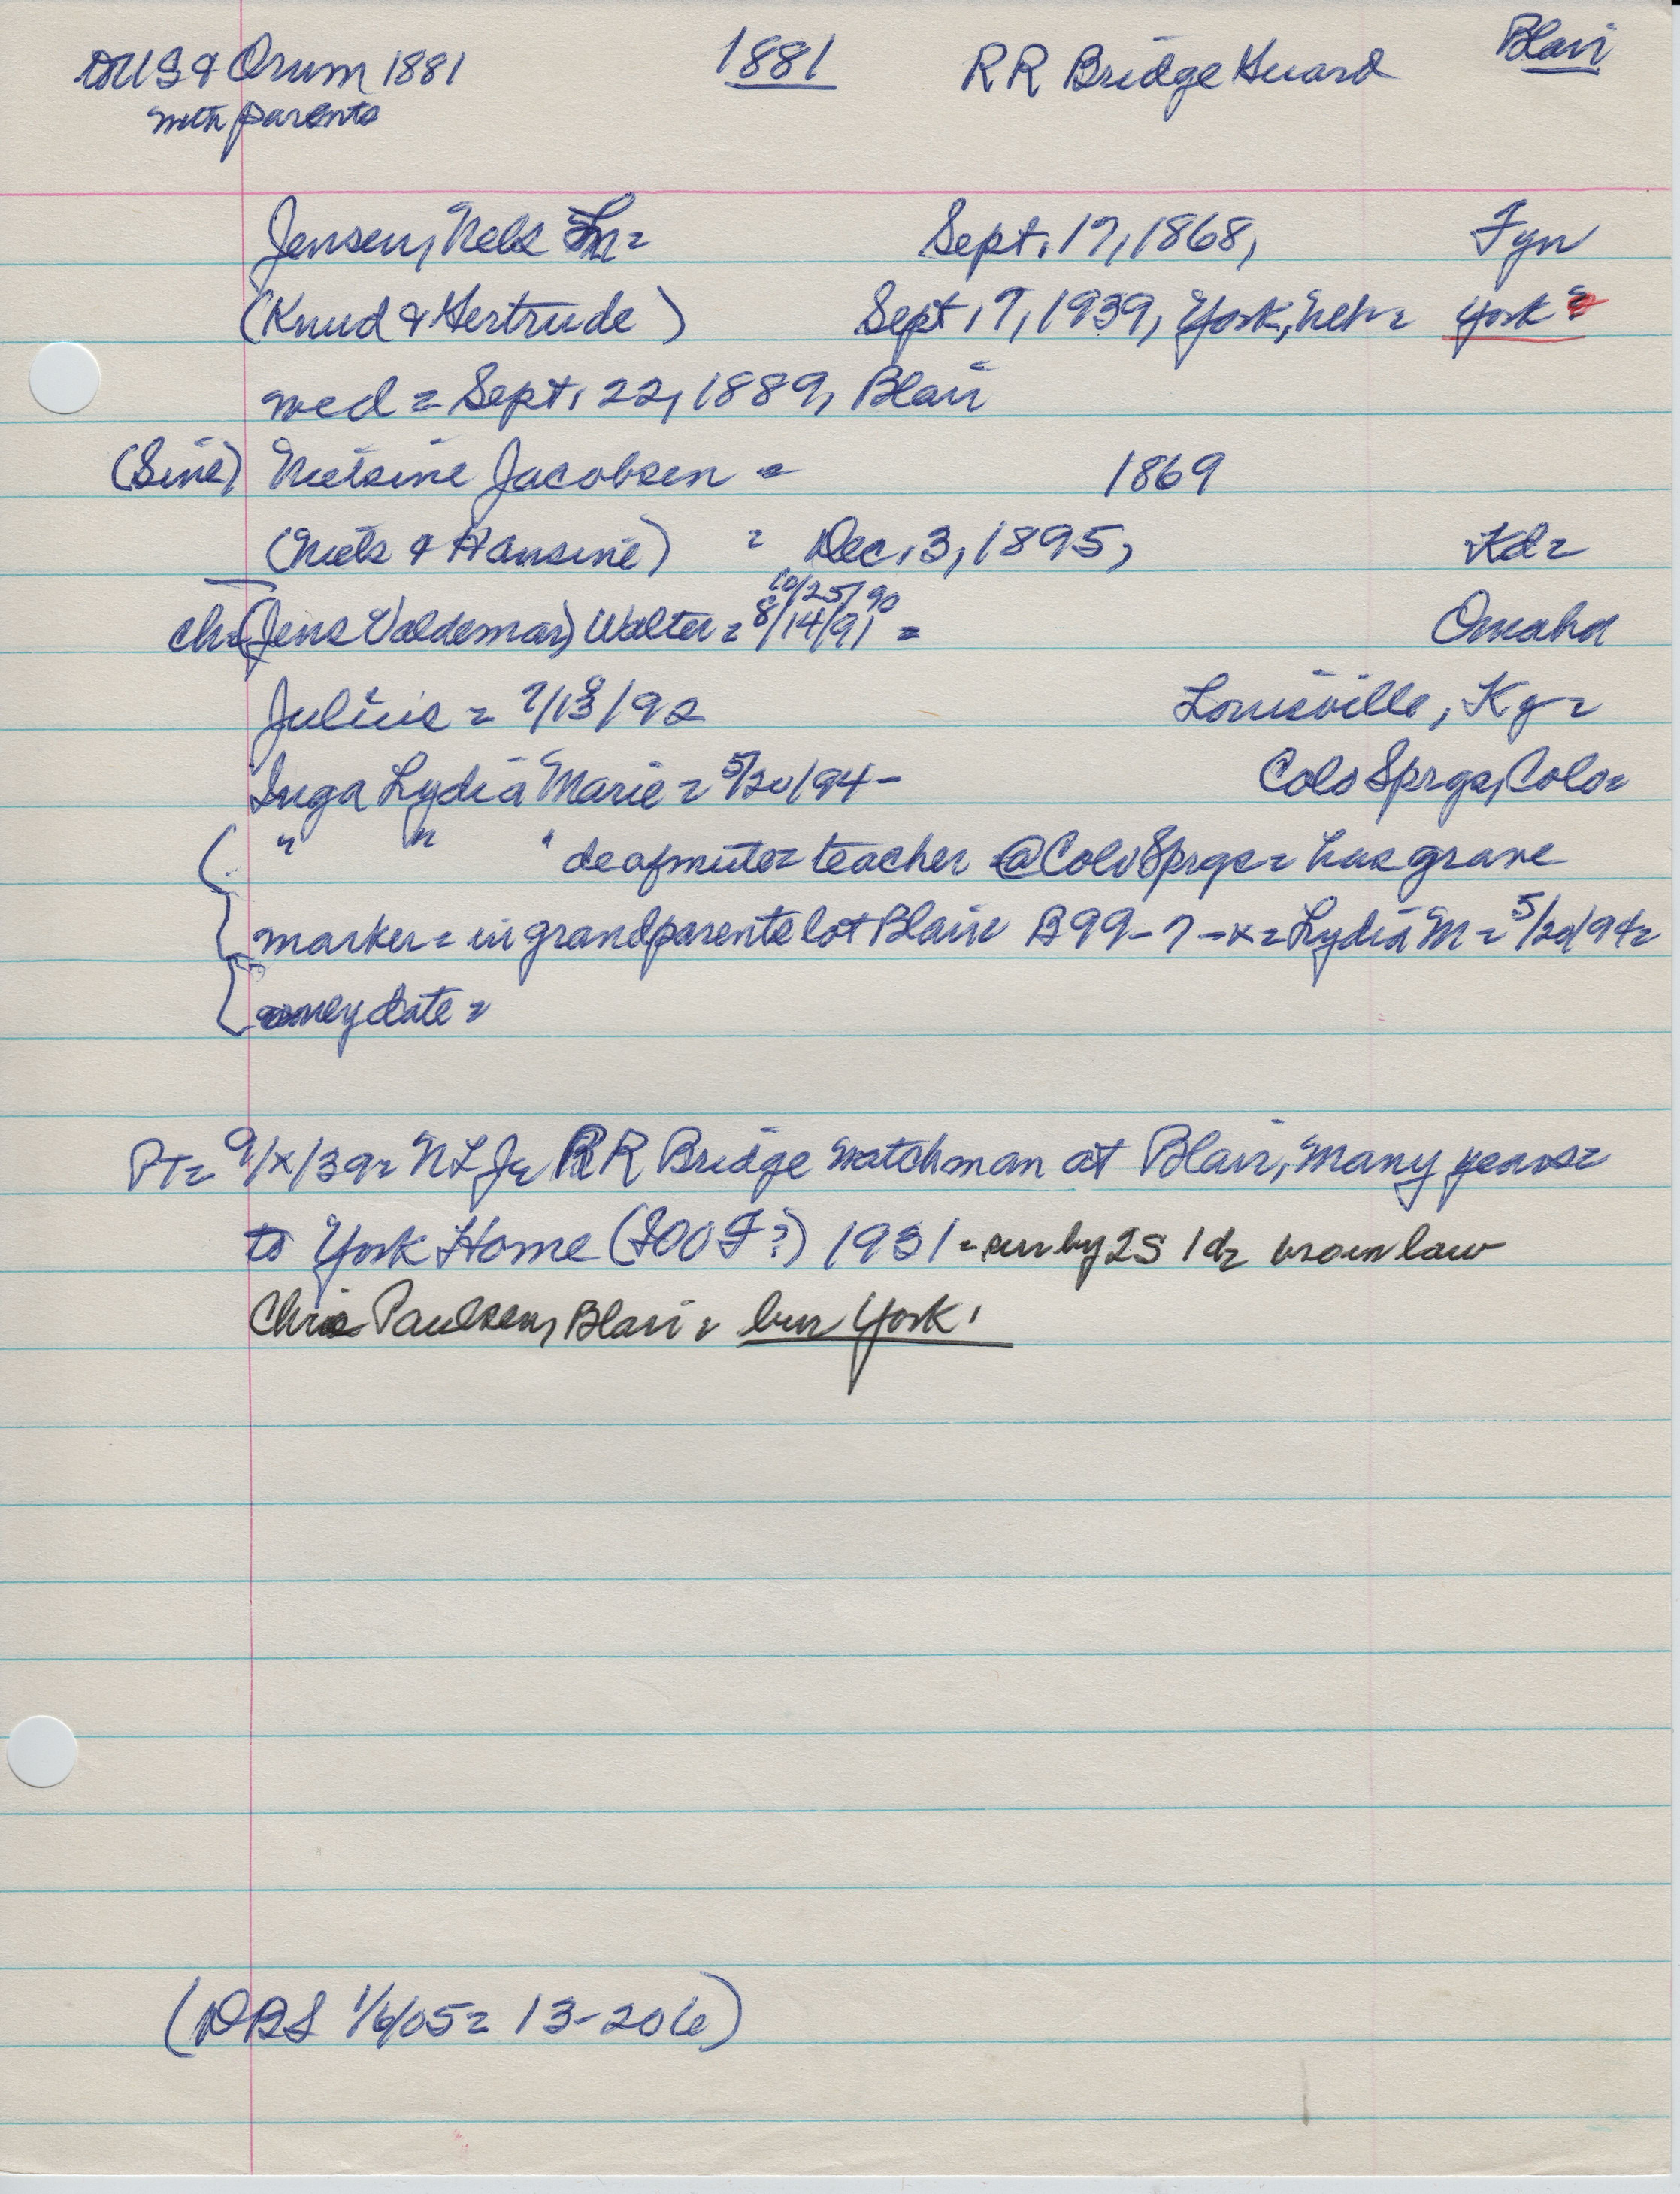 to US & Orum 1881 1881 RR Bridge Guard Blair
with parents
Jensen, Nels = Sept. 17, 1868, Fyn
(Knud & Gertrude) Sept. 7, 1939, York, Neb = York =
wed = Sept. 22, 1889, Blair
(Sine) Nielsine Jacobsen = 1869
(Niels & Hansine) = Dec. 3, 1895, Kd =
10/25/90
ch = (Jens Valdemar) Walter = 8/14/91 = Omaha
Julius = 7/18/92 Louisville, Ky =
Inga Lydia Marie = 5/20/94 - Colo Sprgs, Colo =
" " " deafmute = teacher @ Colo Sprgs = has grave
marker = in grandparents lot Blair B99-7-x = Lydia M = 5/20/94 =
only date =
PT = 9/x/39 = NLJ = RR Bridge watchman at Blair, many years =
to York Home (IOOF?) 1931 = sur by 2S 1d = broinlaw
Chris Paulsen, Blair = bur York.
(DBS 1/6/05 = 13-206)